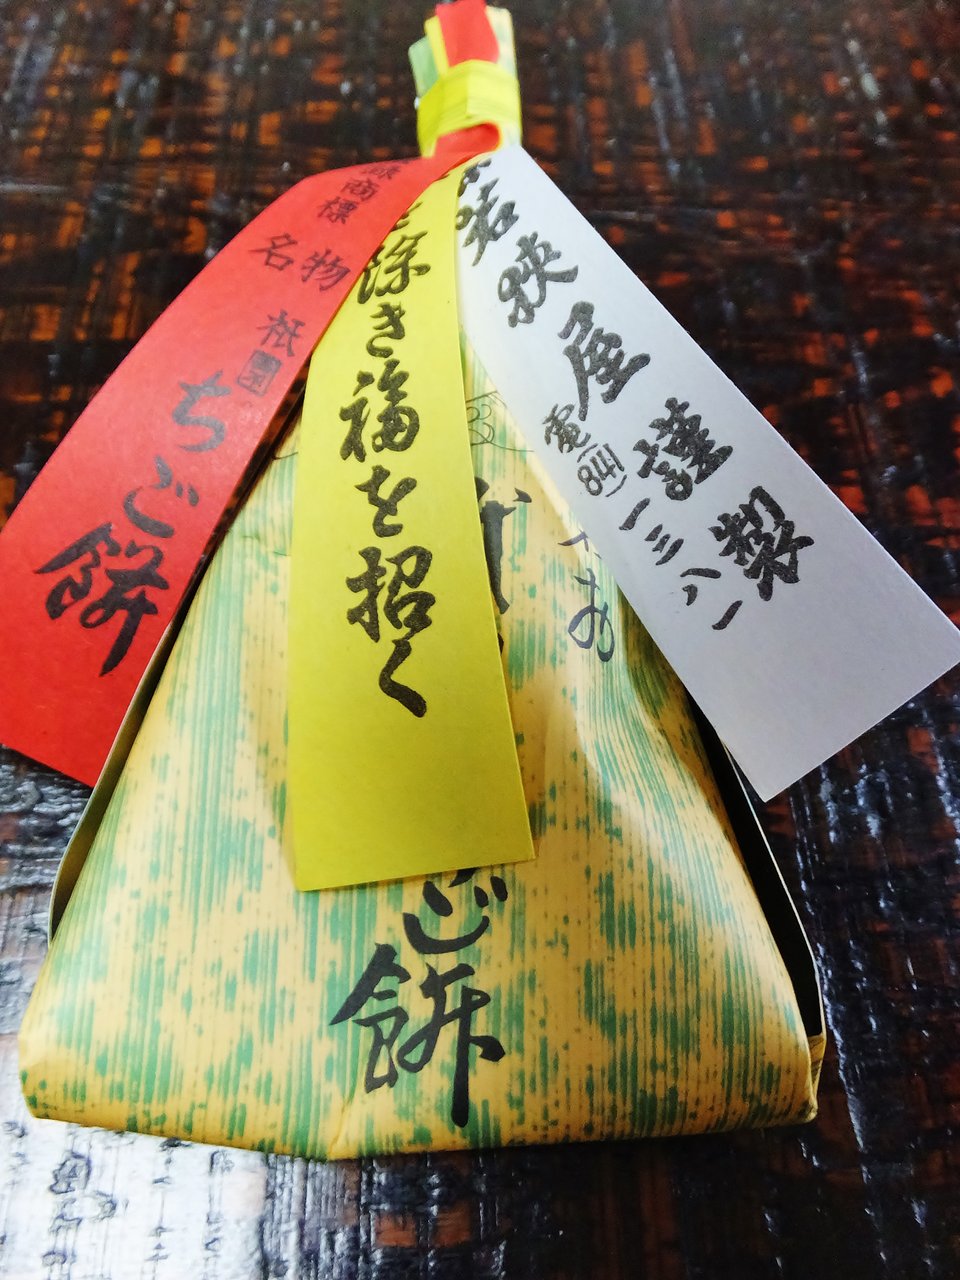 録商標
名物
祇園
ちご餅
を除き福を招く
若狭屋謹製
電(841)一三八一
ちご餅